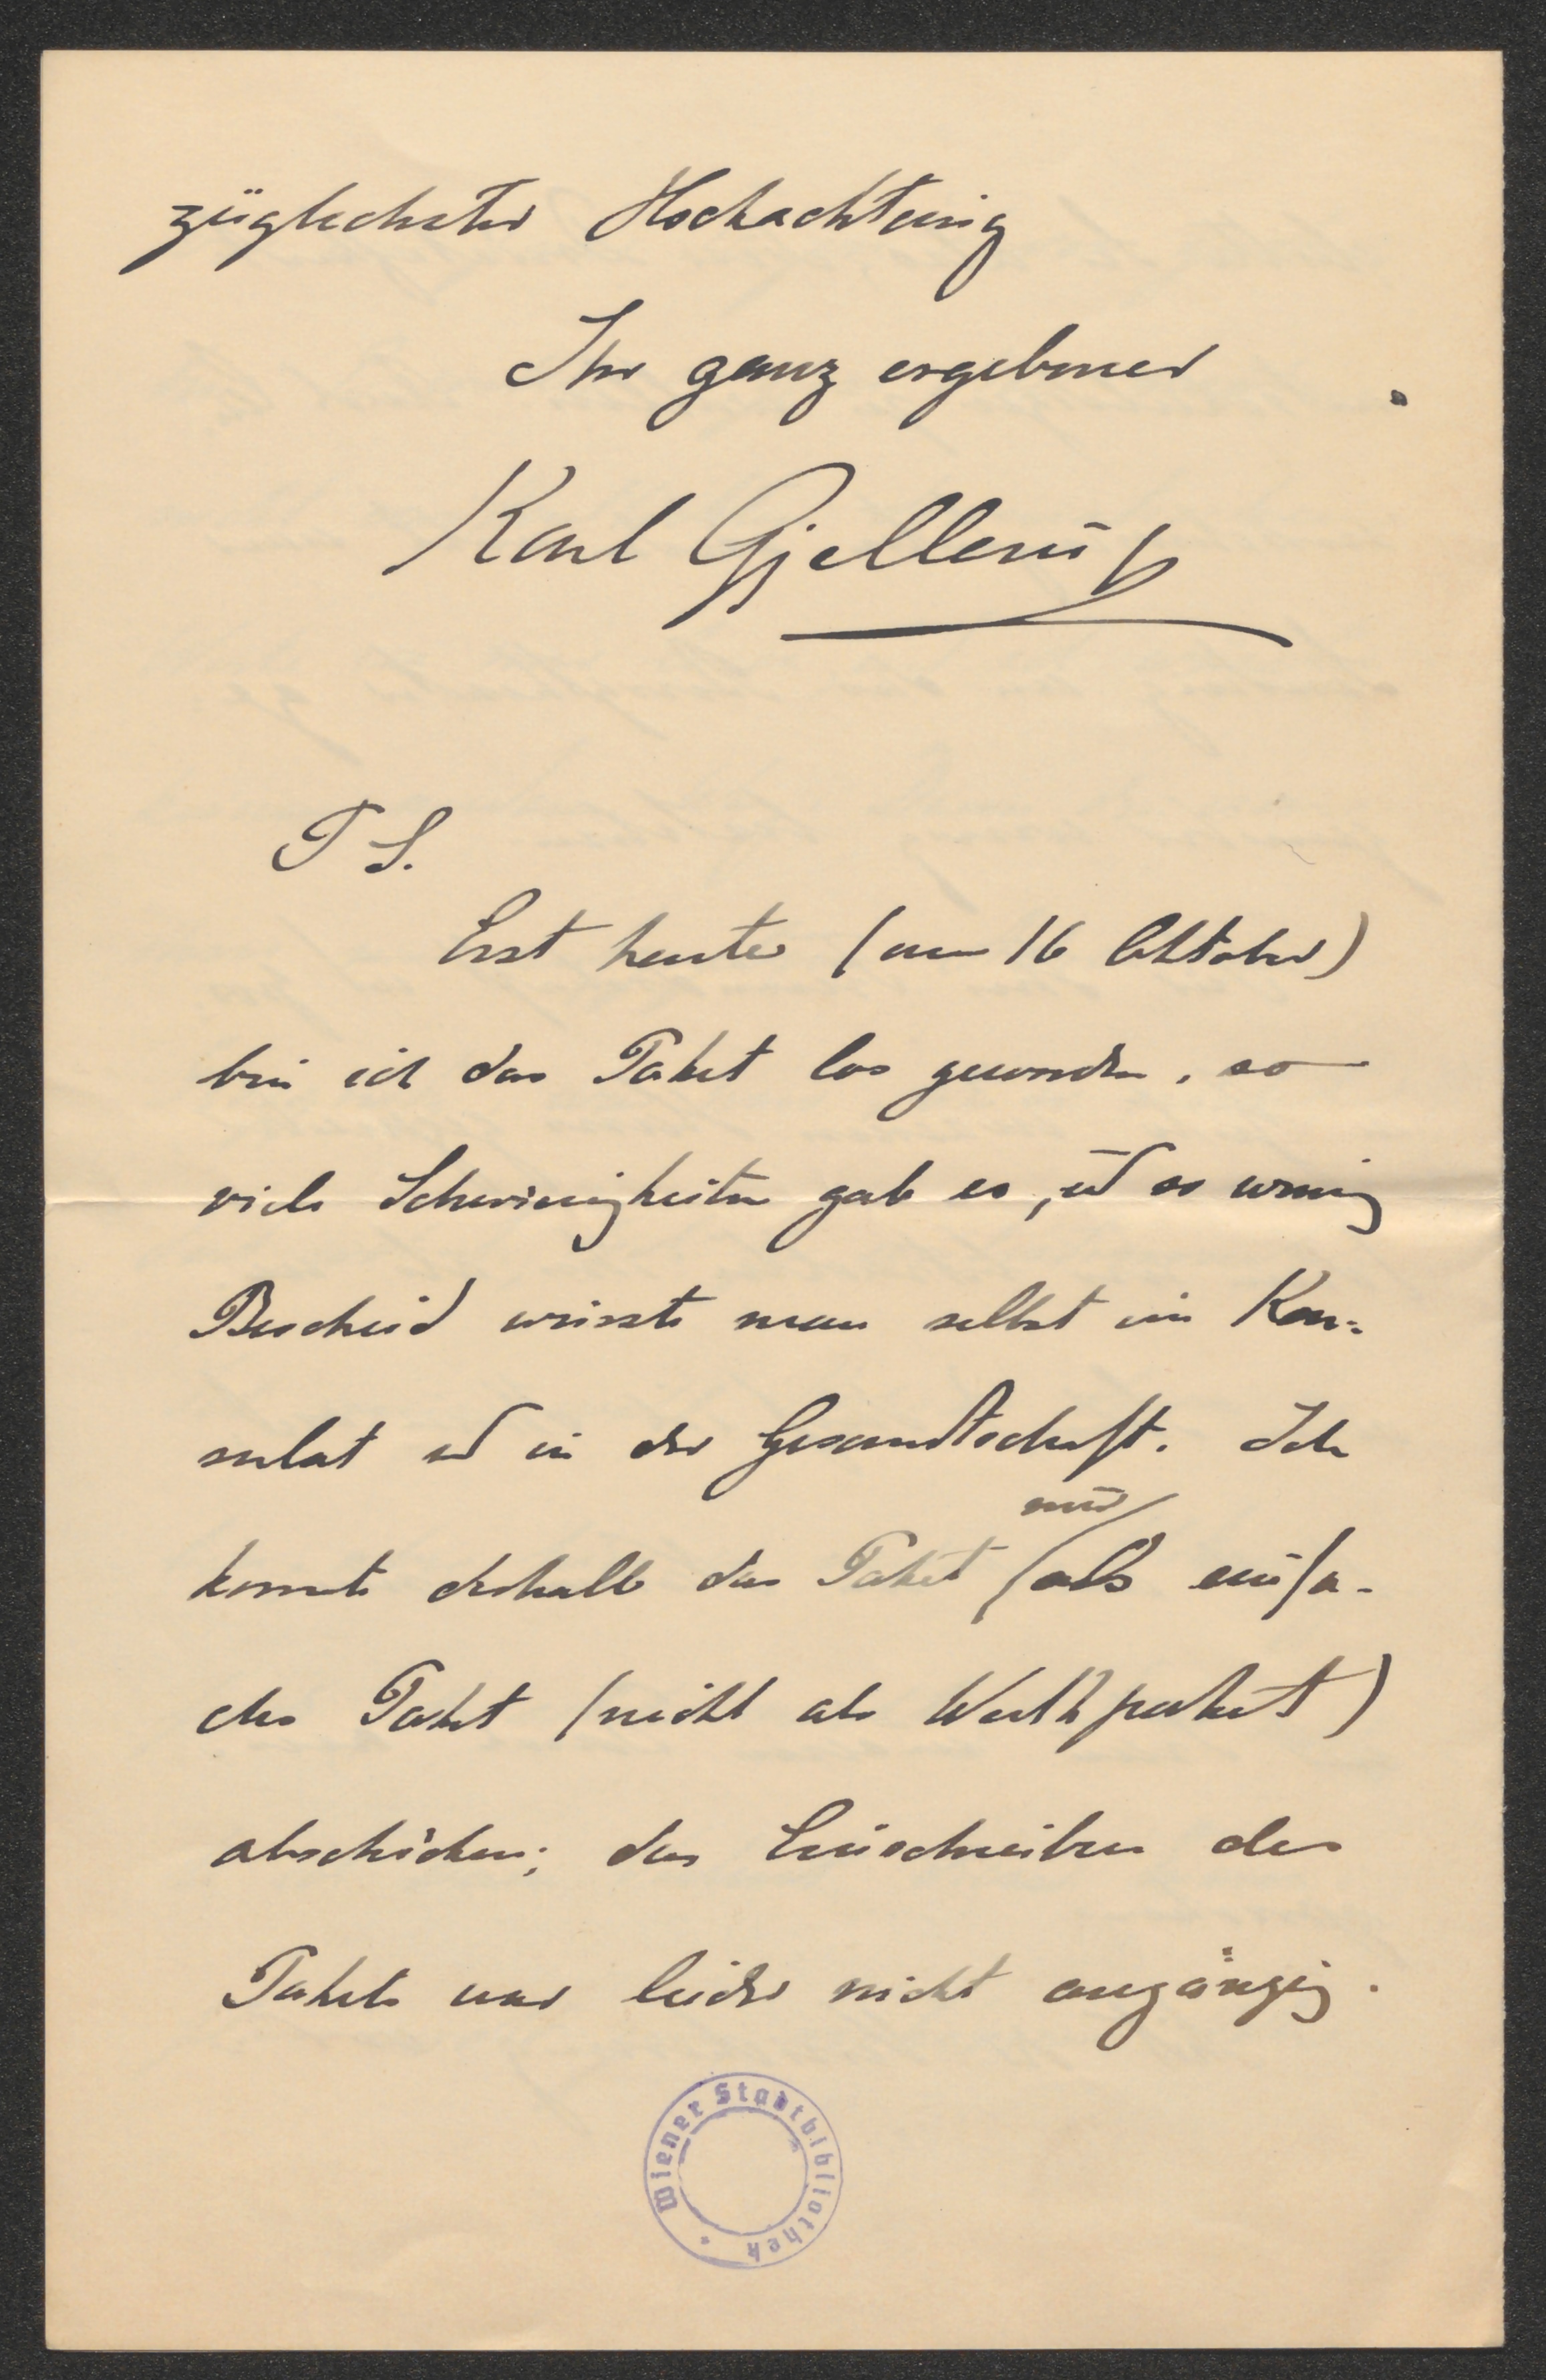 züglichster Hochachtung
Ihr ganz ergebener
Karl Gjellerup
P S.
Erst heute (am 16 Oktober)
bin ich das Paket los geworden, so
viele Schwierigkeiten gab es, ud so wenig
Bescheid wusste man selbst im Kon-
sulat ud in der Gesandtschaft. Ich
nur
konnte deshalb das Paket als einfa-
ches Paket (nicht als Werthpaket)
abschicken; das Einschreiben des
Pakets war leider nicht angängig.
Wiener Stadtbibliothek